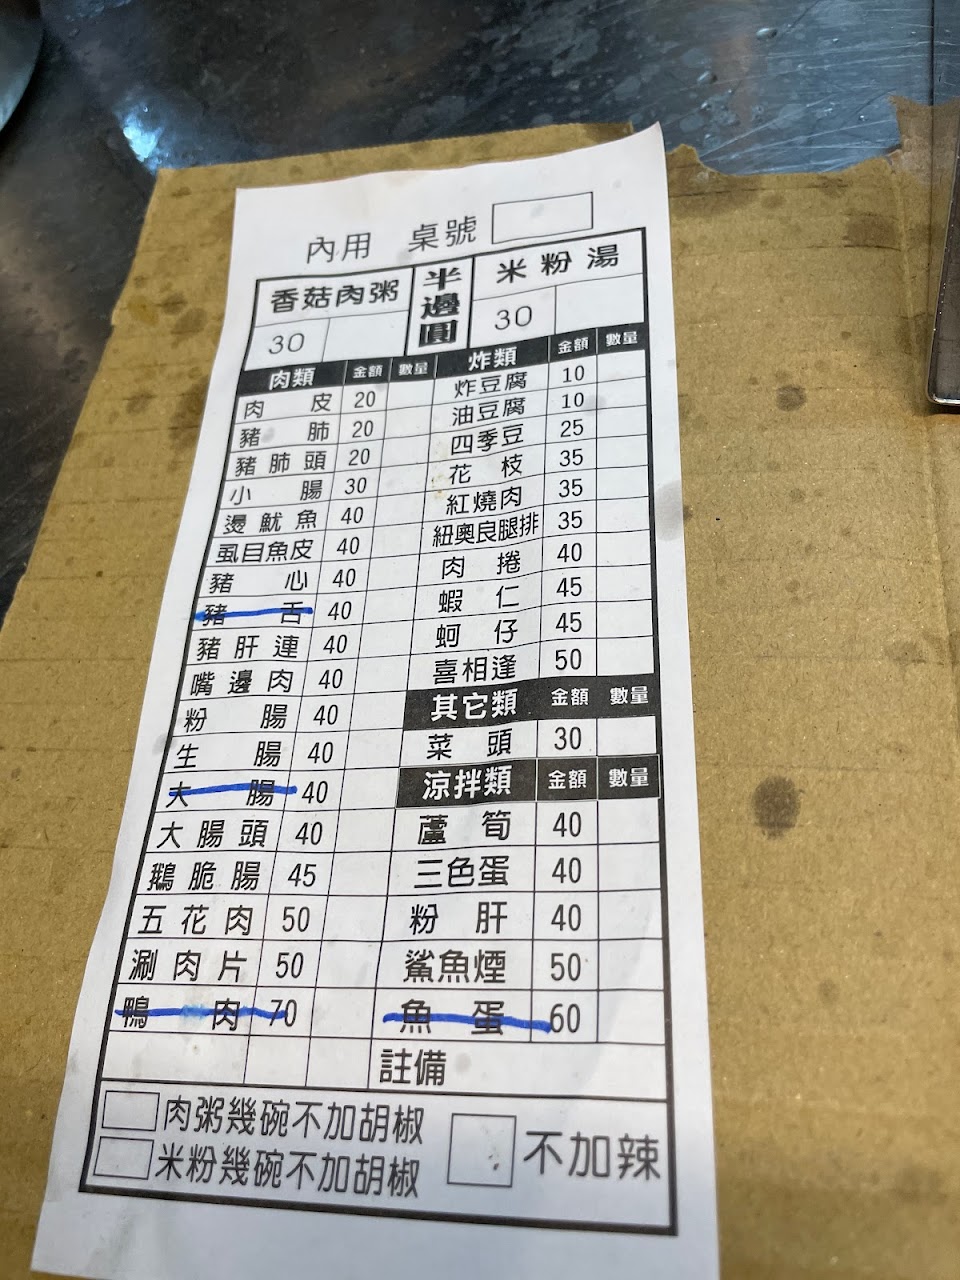 內用 桌號
香菇肉粥 半邊圓 米粉湯
30 30
肉類 金額 數量 炸類 金額 數量
肉皮 20 炸豆腐 10
豬肺 20 油豆腐 10
豬肺頭 20 四季豆 25
小腸 30 花枝 35
燙魷魚 40 紅燒肉 35
虱目魚皮 40 紐奧良腿排 35
豬心 40 肉捲 40
豬舌 40 蝦仁 45
豬肝連 40 蚵仔 45
嘴邊肉 40 喜相逢 50
粉腸 40 其它類 金額 數量
生腸 40 菜頭 30
大腸 40 涼拌類 金額 數量
大腸頭 40 蘆筍 40
鵝脆腸 45 三色蛋 40
五花肉 50 粉肝 40
涮肉片 50 鯊魚煙 50
鴨肉 70 魚蛋 60
註備
肉粥幾碗不加胡椒
米粉幾碗不加胡椒
不加辣